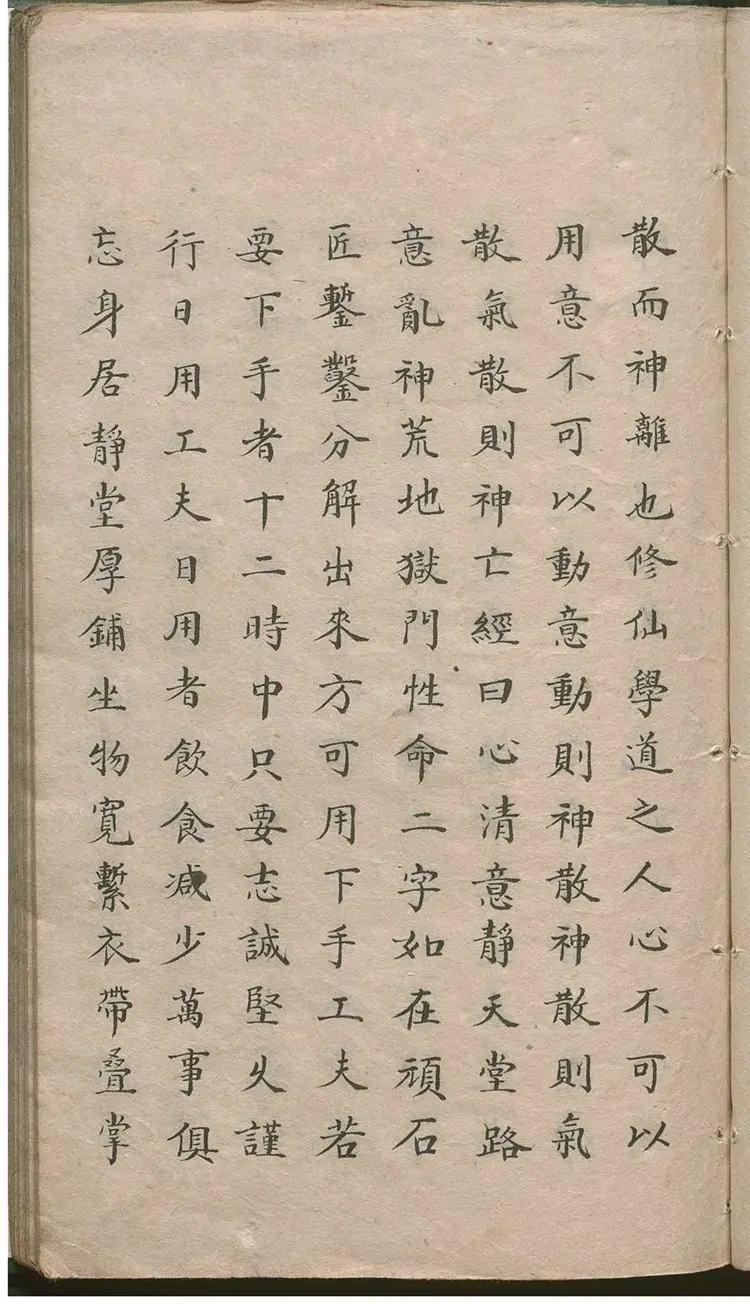 散而神離也修仙學道之人心不可以
用意不可以動意動則神散神散則氣
散氣散則神亡經曰心清意靜天堂路
意亂神荒地獄門性命二字如在頑石
匠鏨鑿分解出來方可用下手工夫若
要下手者十二時中只要志誠堅久謹
行日用工夫日用者飲食减少萬事俱
忘身居靜堂厚鋪坐物寬繫衣帶疊掌